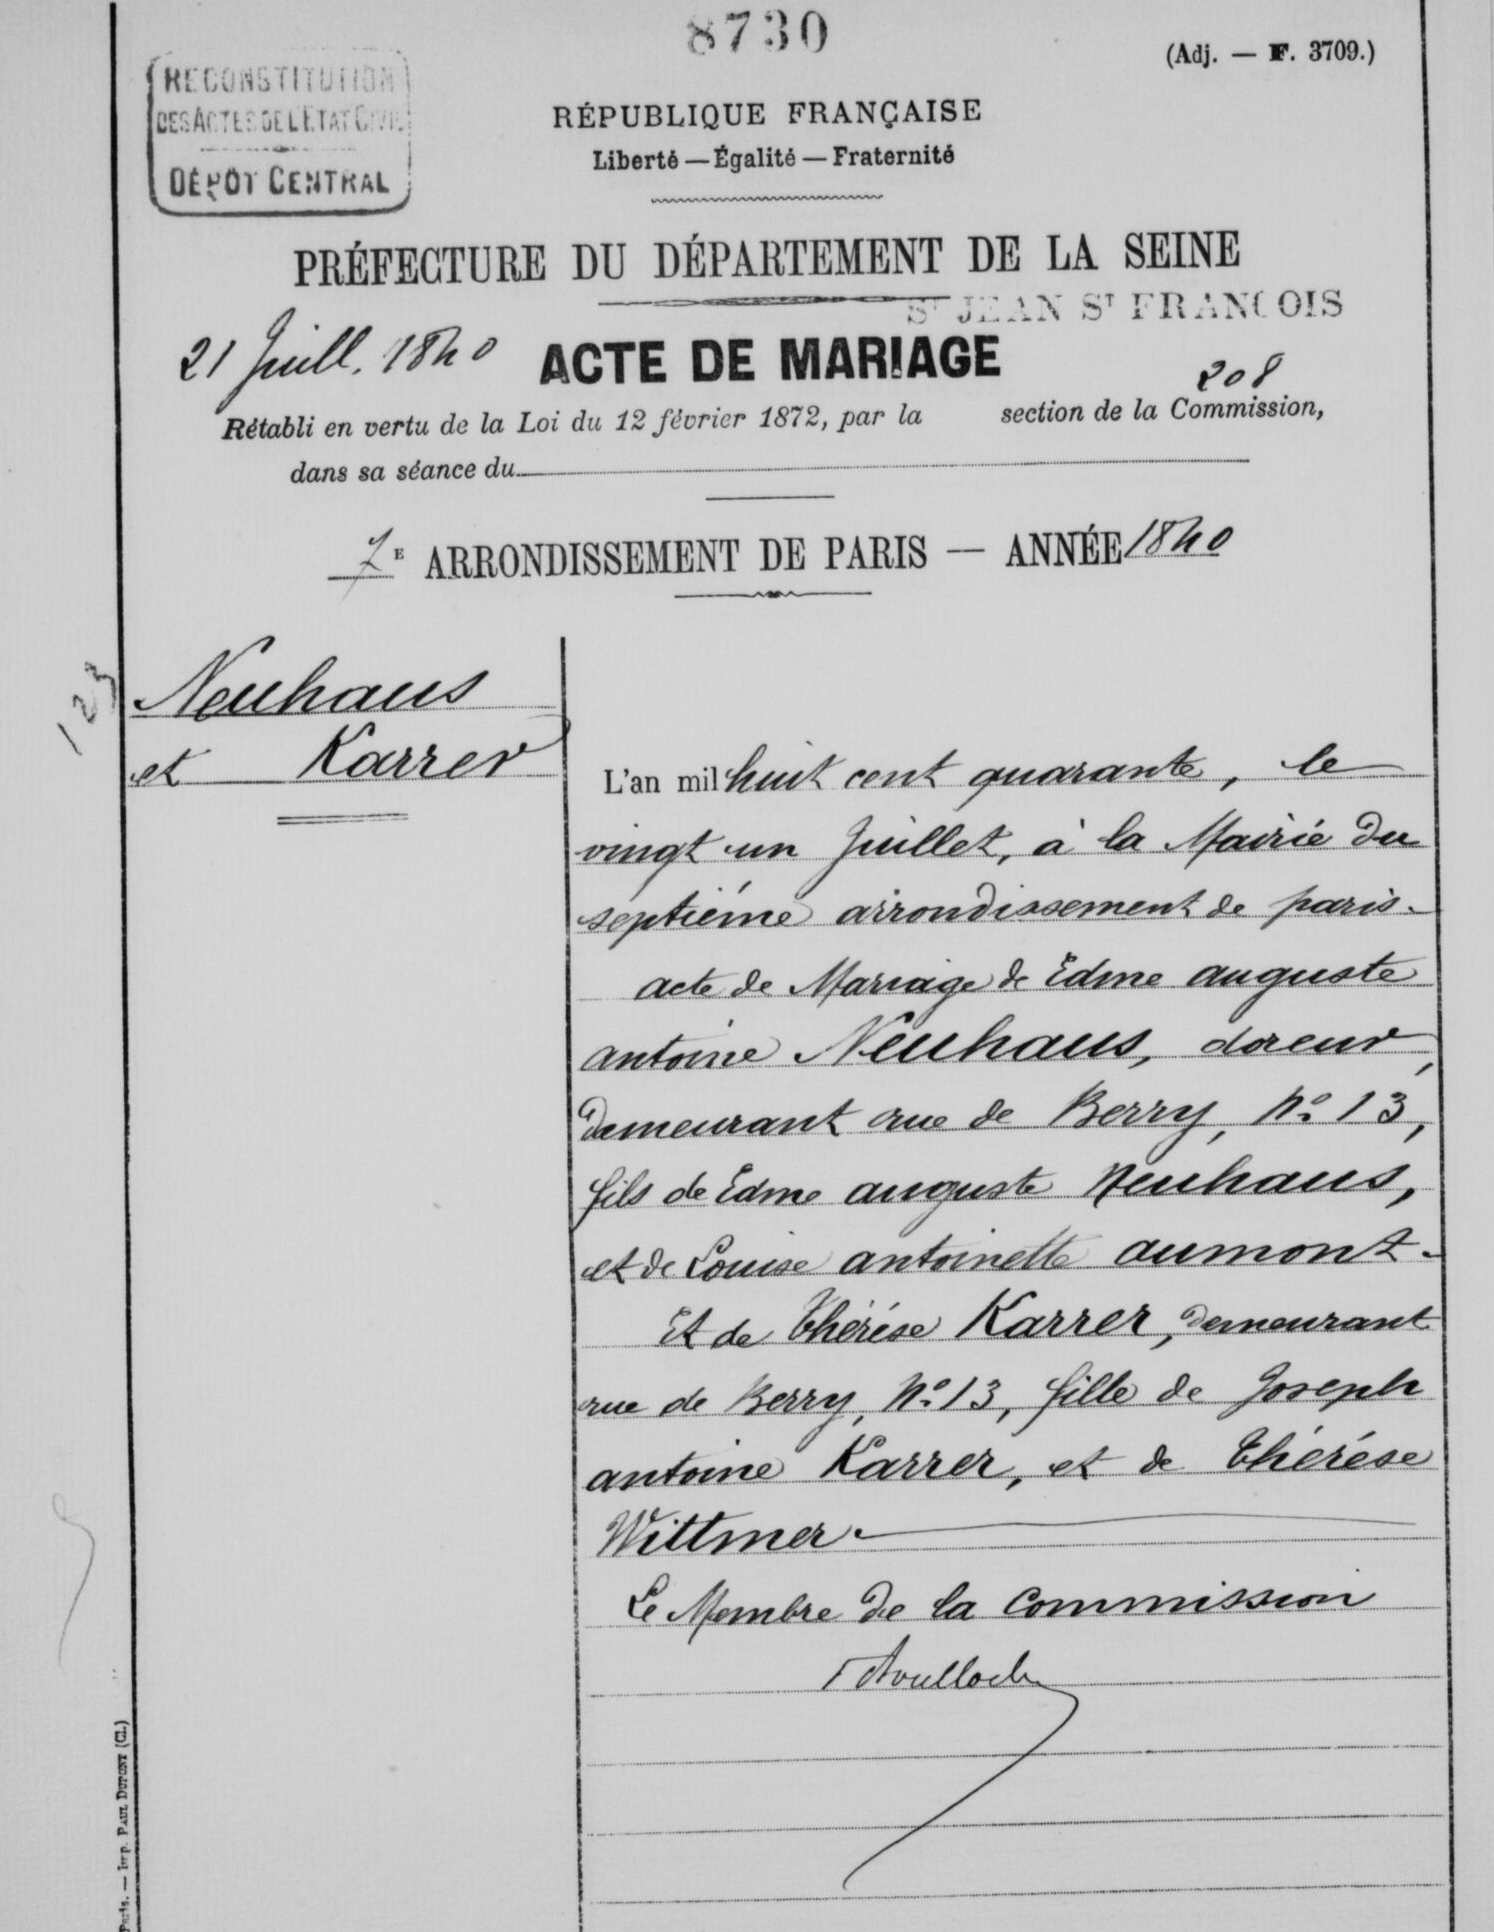 8730
(Adj. — F. 3709.)
RECONSTITUTION
DES ACTES DE L'ETAT CIVIL
DÉPÔT CENTRAL
RÉPUBLIQUE FRANÇAISE
Liberté — Égalité — Fraternité
PRÉFECTURE DU DÉPARTEMENT DE LA SEINE
ST JEAN ST FRANCOIS
21 Juill. 1840
ACTE DE MARIAGE
208
Rétabli en vertu de la Loi du 12 février 1872, par la section de la Commission,
dans sa séance du
7E ARRONDISSEMENT DE PARIS — ANNÉE 1840
123
Neuhaus
et Karrer
L'an mil huit cent quarante, le
vingt un Juillet, à la Mairie du
septiéme arrondissement de paris.
acte de Mariage de Edme auguste
antoine Neuhaus, doreur,
demeurant rue de Berry, No 13,
fils de Edme auguste Neuhaus,
et de Louise antoinette aumont.
Et de thérése Karrer, demeurant
rue de Berry, No 13, fille de Joseph
antoine Karrer, et de thérése
Wittmer.
Le Membre de la Commission
Paris. — Imp. PAUL DUPONT (Cl.)